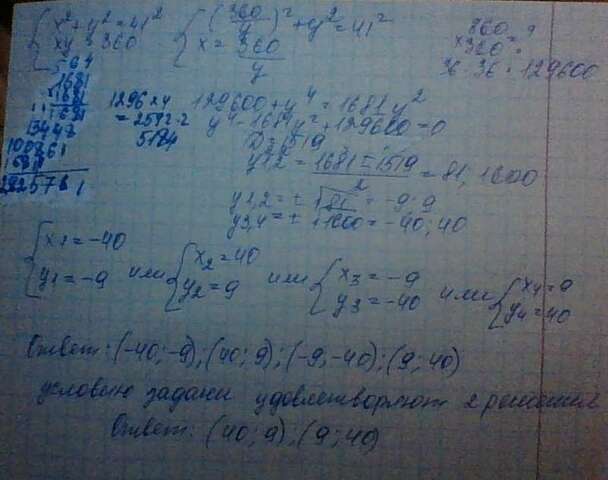 { x² + y² = 41²
xy = 360
{ (360/y)² + y² = 41²
x = 360/y
360
× 360 = ?
36 · 36 = 129600
1681
1681
1681
13448
10086
1296 × 4
= 2592 · 2
5184
129600 + y⁴ = 1681 y²
y⁴ - 1681y² + 129600 = 0
y²1,2 = (1681 ± 1519)/2 = 81, 1600
y1,2 = ± √81 = -9; 9
y3,4 = ± √1600 = -40; 40
{ x1 = -40
y1 = -9
или
{ x2 = 40
y2 = 9
или
{ x3 = -9
y3 = -40
или
{ x4 = 9
y4 = 40
Ответ: (-40; -9); (40; 9); (-9; -40); (9; 40)
условию задачи удовлетворяют 2 решения
Ответ: (40; 9); (9; 40)